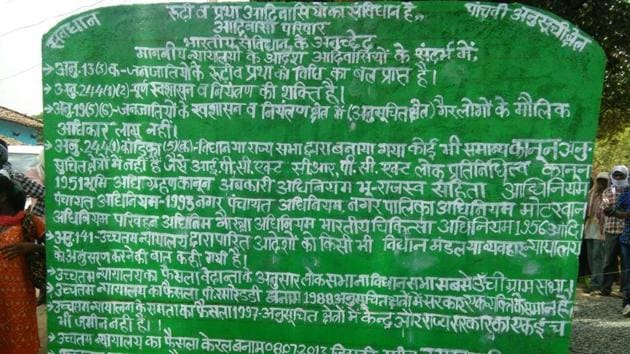 सावधान रूढी व प्रथा आदिवासियों का संविधान है, पांचवी अनुसूची क्षेत्र
आदिवासी परिवार
भारतीय संविधान के अनुच्छेद
माननीय न्यायालयों के आदेश आदिवासियों के संदर्भ में;
→अनु. 13(3)क-जनजातियों के रूढी व प्रथा को विधि का बल प्राप्त है।
→अनु. 244(1)(2)-पूर्ण स्वशासन व नियंत्रण की शक्ति है।
→अनु. 19(5)(6)-जनजातियों के स्वशासन व नियंत्रण क्षेत्र में (अनुसूचित क्षेत्र) गैर लोगों के मौलिक
अधिकार लागू नहीं।
→अनु. 244(1) कंडिका (5)क-विधान या राज्य सभा द्वारा बनाया गया कोई भी समान्य कानून अनु-
सूचित क्षेत्रों में नहीं है जैसे आई.पी.सी. एक्ट सी.आर.पी.सी. एक्ट लोक प्रतिनिधित्व कानून
1951 भूमि अधिग्रहण कानून अबकारी अधिनियम भू-राजस्व संहिता अधिनियम
पंचायत अधिनियम-1993 नगर पंचायत अधिनियम नगर पालिका अधिनियम मोटर वाहन
अधिनियम परिवहन अधिनियम गौ रक्षा अधिनियम भारतीय चिकित्सा अधिनियम 1956 आदि।
→अनु. 141-उच्चतम न्यायालय द्वारा पारित आदेशों को किसी भी विधान मंडल या व्यवहार न्यायालय
को अनुसरण करने की बात कही गयी है।
→उच्चतम न्यायालय का फैसला वेदान्ता के अनुसार लोकसभा न विधान सभा सबसे ऊँची ग्राम सभा।
→उच्चतम न्यायालय का फैसला पी. रमी रेड्डी बनाम 1988 अनुसूचित क्षेत्रों में सरकार एक व्यक्ति के समान है।
→उच्चतम न्यायालय के समता का फैसला 1997-अनुसूचित क्षेत्रों में केन्द्र और राज्य सरकार की एक इंच
भी जमीन नहीं है।
→उच्चतम न्यायालय का फैसला केरल बनाम 08.07.2013